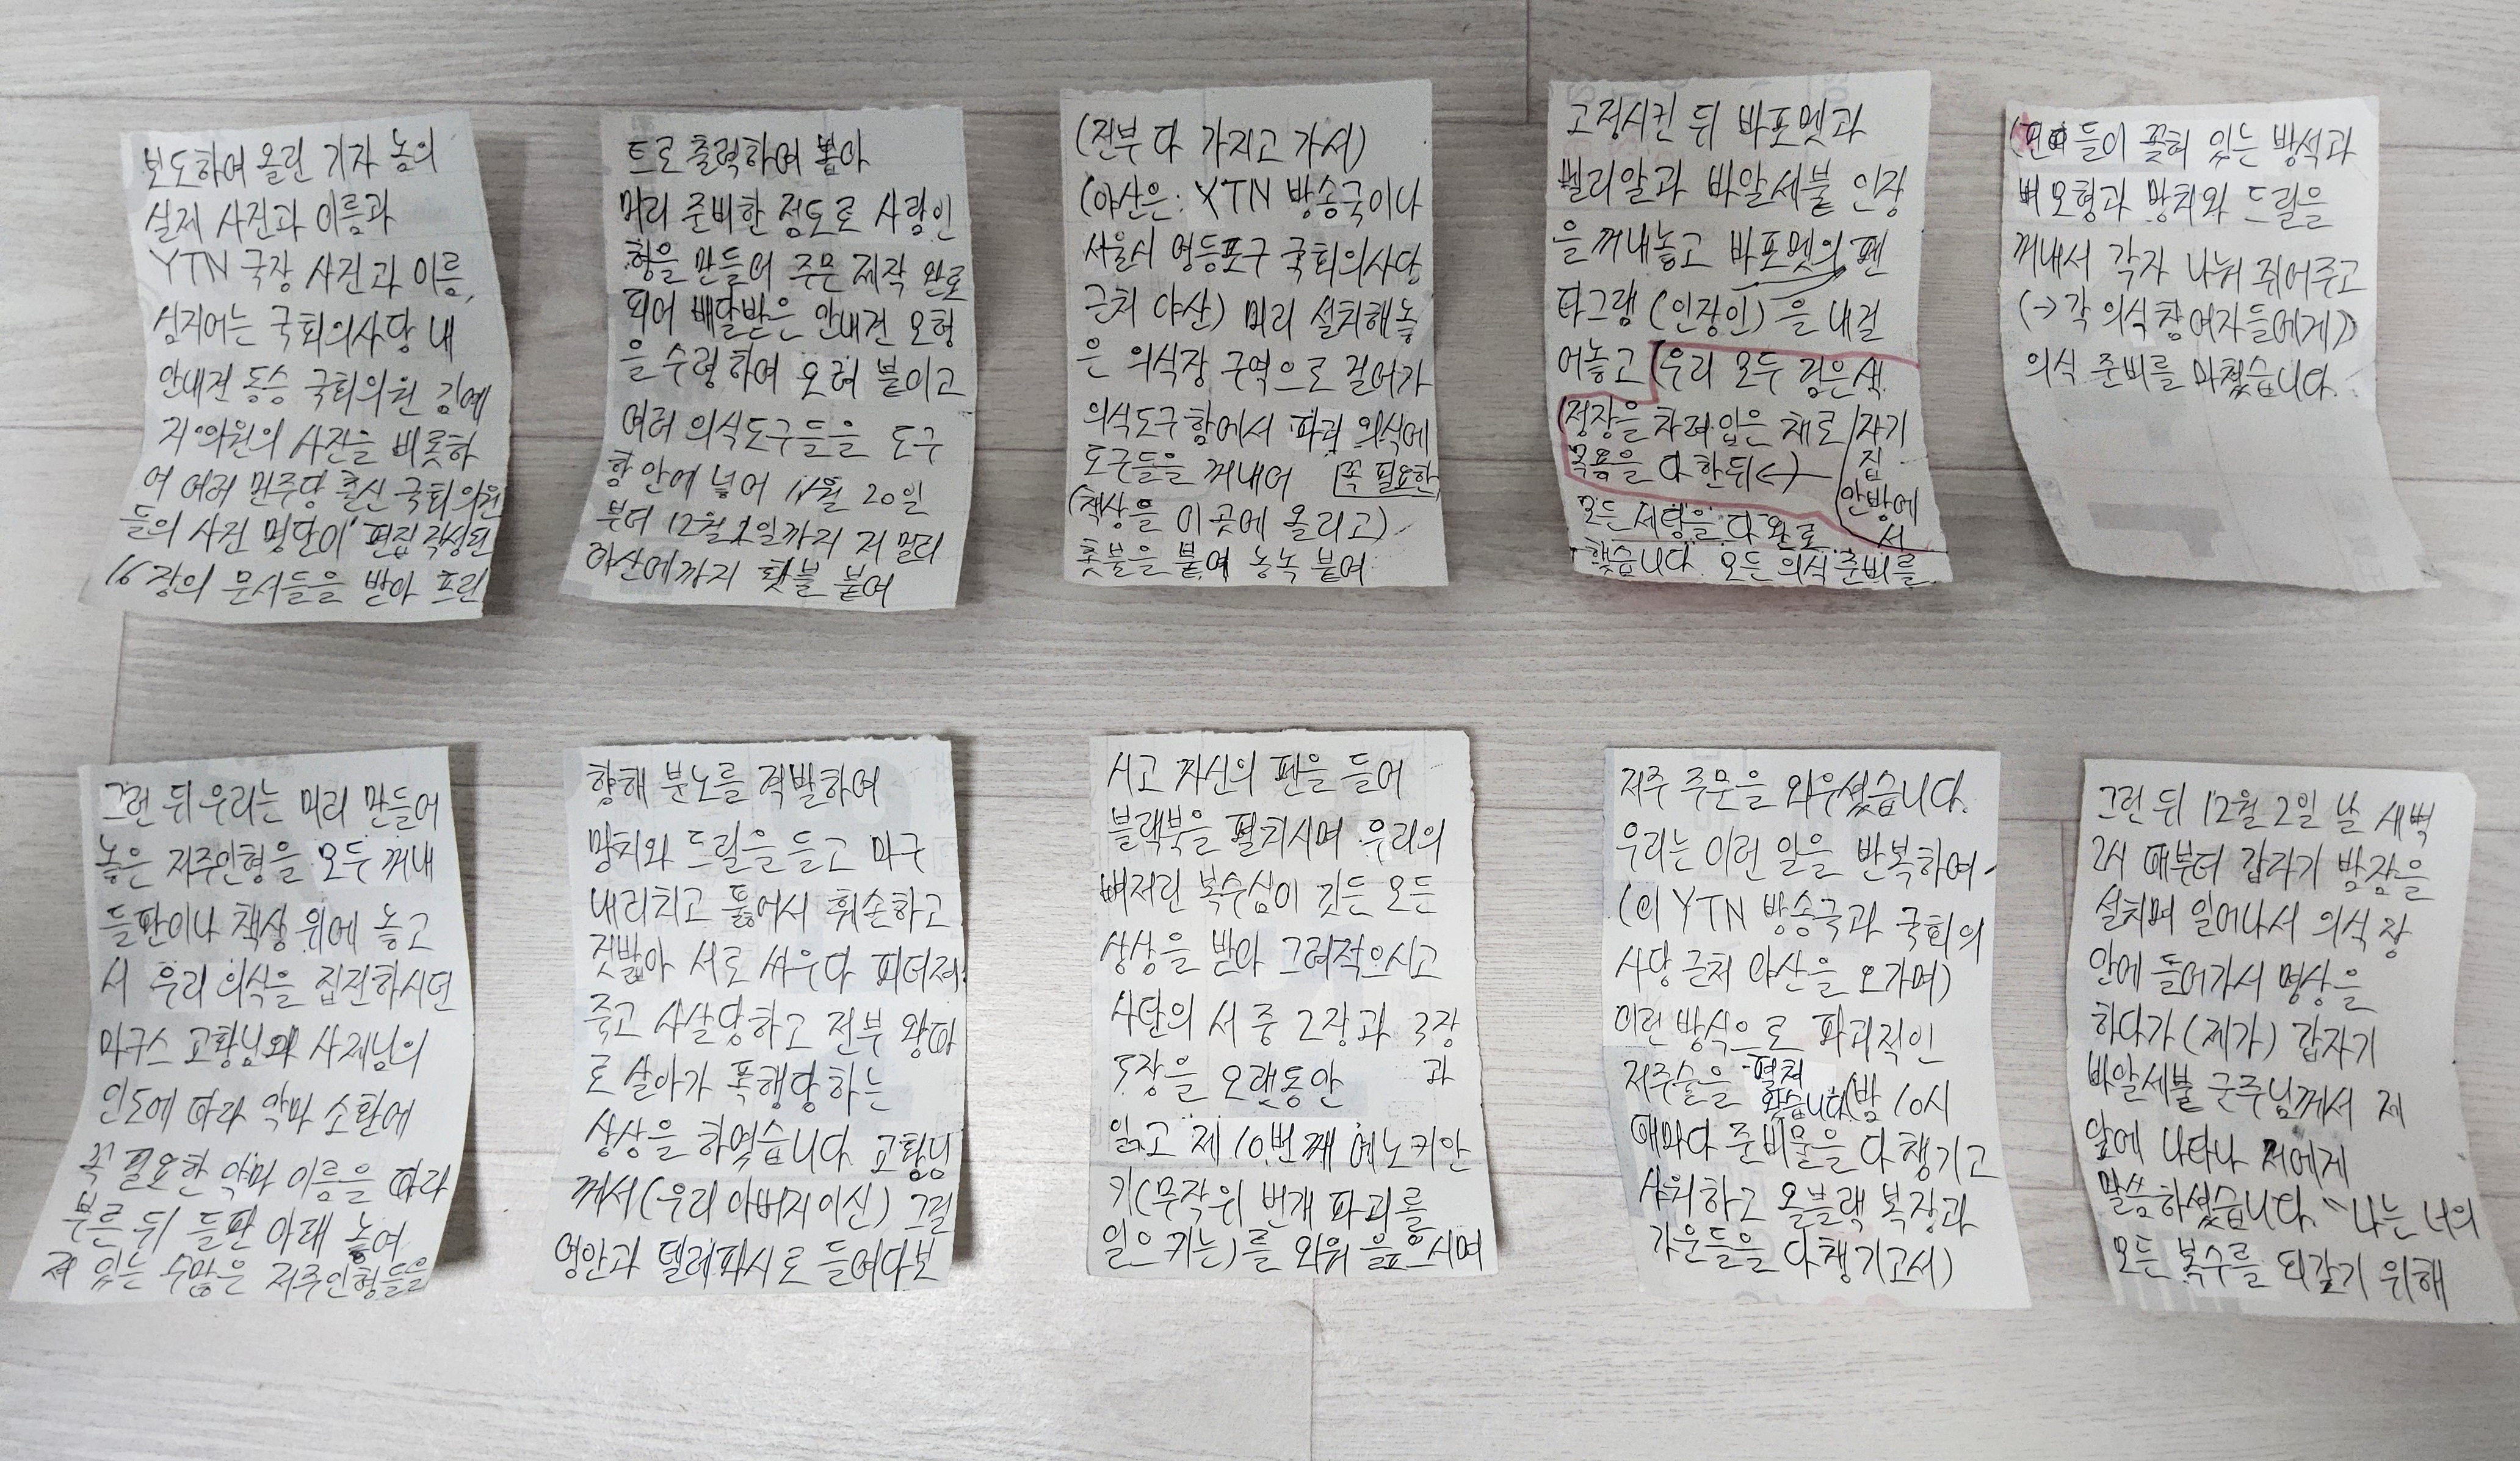 보도하여 올린 기자 놈의
실제 사진과 이름과
YTN 국장 사진과 이름,
심지어는 국회의사당 내
안내견 동승 국회의원 김예
지 의원의 사진을 비롯하
여 여러 민주당 출신 국회의원
들의 사진 명단이 편집 작성된
16장의 문서들을 받아 프린
트로 출력하여 뽑아
미리 준비한 점토로 사람인
형을 만들어 주문 제작 완료
되어 배달받은 안내견 모형
을 수령하여 오려 붙이고
여러 의식도구들을 도구
함 안에 넣어 11월 20일
부터 12월 1일까지 저 멀리
야산에까지 횃불 붙여
(전부 다 가지고 가서)
(야산은: YTN 방송국이나
서울시 영등포구 국회의사당
근처 야산) 미리 설치해놓
은 의식장 구역으로 걸어가
의식도구함에서 파괴 의식에
도구들을 꺼내어 꼭 필요한
(책상을 이 곳에 올리고)
촛불을 붙여 농녹 붙여
고정시킨 뒤 바포멧과
벨리알과 바알세불 인장
을 꺼내놓고 바포멧의 펜
타그램 (인장인)을 내걸
어놓고 (우리 모두 검은색
정장을 차려입은 채로/자기
목욕을 다 한뒤 집
안방에
모든 세팅을 다 완료 서
했습니다. 모든 의식 준비를
들이 꽂혀 있는 방석과
뼈모형과 망치와 드릴을
꺼내서 각자 나눠 쥐어주고
(→각 의식 참여자들에게)
의식 준비를 마쳤습니다.
그런 뒤 우리는 미리 만들어
놓은 저주인형을 모두 꺼내
들판이나 책상 위에 놓고
서 우리 의식을 집전하시던
마쿠스 교황님과 사제님의
인도에 따라 악마 소환에
꼭 필요한 악마 이름을 따라
부른 뒤 들판 아래 놓여
져 있는 수많은 저주인형들을
향해 분노를 격발하여
망치와 드릴을 들고 마구
내리치고 뚫어서 훼손하고
짓밟아 서로 싸우다 피터져
죽고 사살당하고 전부 왕따
로 살아가 폭행당하는
상상을 하였습니다. 교황님
께서 (우리 아버지이신) 그걸
영안과 텔레파시로 들여다보
시고 자신의 펜을 들어
블랙북을 펼치시며 우리의
뼈저린 복수심이 깃든 모든
상상을 받아 그려적으시고
사탄의 서 중 2장과 3장
5장을 오랫동안 과
읽고 제 10번째 에노키안
키(무작위 번개 파괴를
일으키는)를 외워 읊으시며
저주 주문을 외우셨습니다.
우리는 이런 일을 반복하여
(이 YTN 방송국과 국회의
사당 근처 야산을 오가며)
이런 방식으로 파괴적인
저주술을 펼쳐
왔습니다(밤 10시
때마다 준비물을 다 챙기고
샤워하고 올블랙 복장과
가운들을 다 챙기고서)
그런 뒤 12월 2일 날 새벽
2시 때부터 갑자기 밤잠을
설치며 일어나서 의식장
안에 들어가서 명상을
하다가 (제가) 갑자기
바알세불 군주님께서 제
앞에 나타나 저에게
말씀하셨습니다. "나는 너의
모든 복수를 되갚기 위해